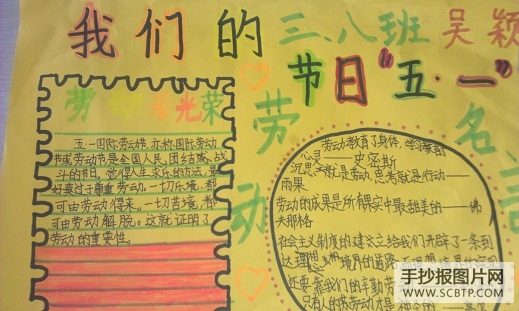 我们的
三、八班 吴颖
节日"五·一"
劳动最光荣
五一国际劳动节,亦称国际劳动
节或劳动节是全国人民,团结或战
斗的节日。觉得人生求乐的方法,最
好莫过于尊重劳动。一切乐境,都
可由劳动得来。一切苦境,都
可由劳动解脱。这就证明了
劳动的重要性。
劳动
名言
劳动教育了身体,学习教育
心灵——史密斯
沉思就是劳动,思考就是行动——
雨果
劳动的成果是所有果实中最甜美的——佛
夫那格
社会主义制度的建立给我们开辟了一条到
达理想境界的道路
还要靠我们的辛勤劳
手抄报图片网
www.SCBTP.com